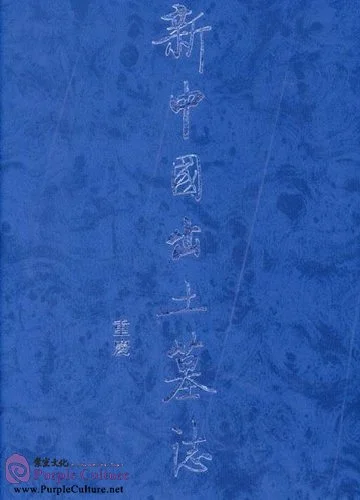 新中國出土墓誌
重慶
紫宸文化
Purple Culture
www.PurpleCulture.net